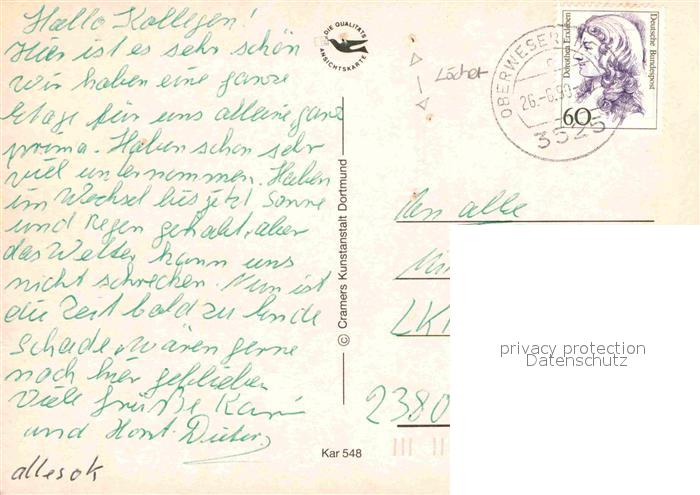 Hallo Kollegen!
Hier ist es sehr schön
wir haben eine ganze
Etage für uns alleine ganz
prima. Haben schon sehr
viel unternommen. Haben
im Wechsel bis jetzt Sonne
und Regen gehabt, aber
das Wetter kann uns
nicht schrecken. Nun ist
die Zeit bald zu Ende
Schade, wären gerne
noch hier geblieben
Viele Grüße Karin
und Horst-Dieter
alles ok
DIE QUALITÄTS
ANSICHTSKARTE
Löcher
© Cramers Kunstanstalt Dortmund
Kar 548
OBERWESER
26.-6.90
3525
Dorothea Erxleben
Deutsche Bundespost
60
An alle
LK
2380
privacy protection
Datenschutz